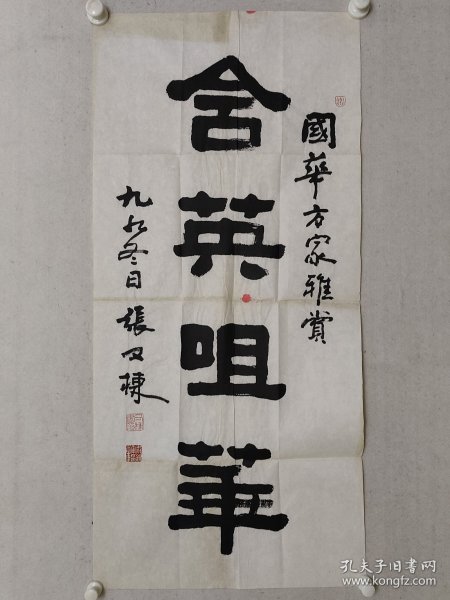 國華方家雅賞
含英咀華
九八冬日張又棟
孔夫子旧书网
www.kongfz.com